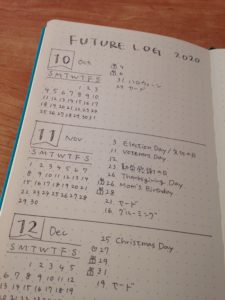 FUTURE LOG 2020
10 Oct
S M T W T F S
1 2 3
4 5 6 7 8 9 10
11 12 13 14 15 16 17
18 19 20 21 22 23 24
25 26 27 28 29 30 31
4
6
31 ハロウィーン
19 ヤード
11 Nov
S M T W T F S
1 2 3 4 5 6 7
8 9 10 11 12 13 14
15 16 17 18 19 20 21
22 23 24 25 26 27 28
29 30
3 Election Day / 文化の日
11 Veterans Day
12
23 勤労感謝の日
26 Thanksgiving Day
26 Mom's Birthday
28
21 ヤード
16 グルーミング
12 Dec
S M T W T F S
1 2 3 4 5
6 7 8 9 10 11 12
13 14 15 16 17 18 19
25 Christmas Day
27
29
31
19 ヤード